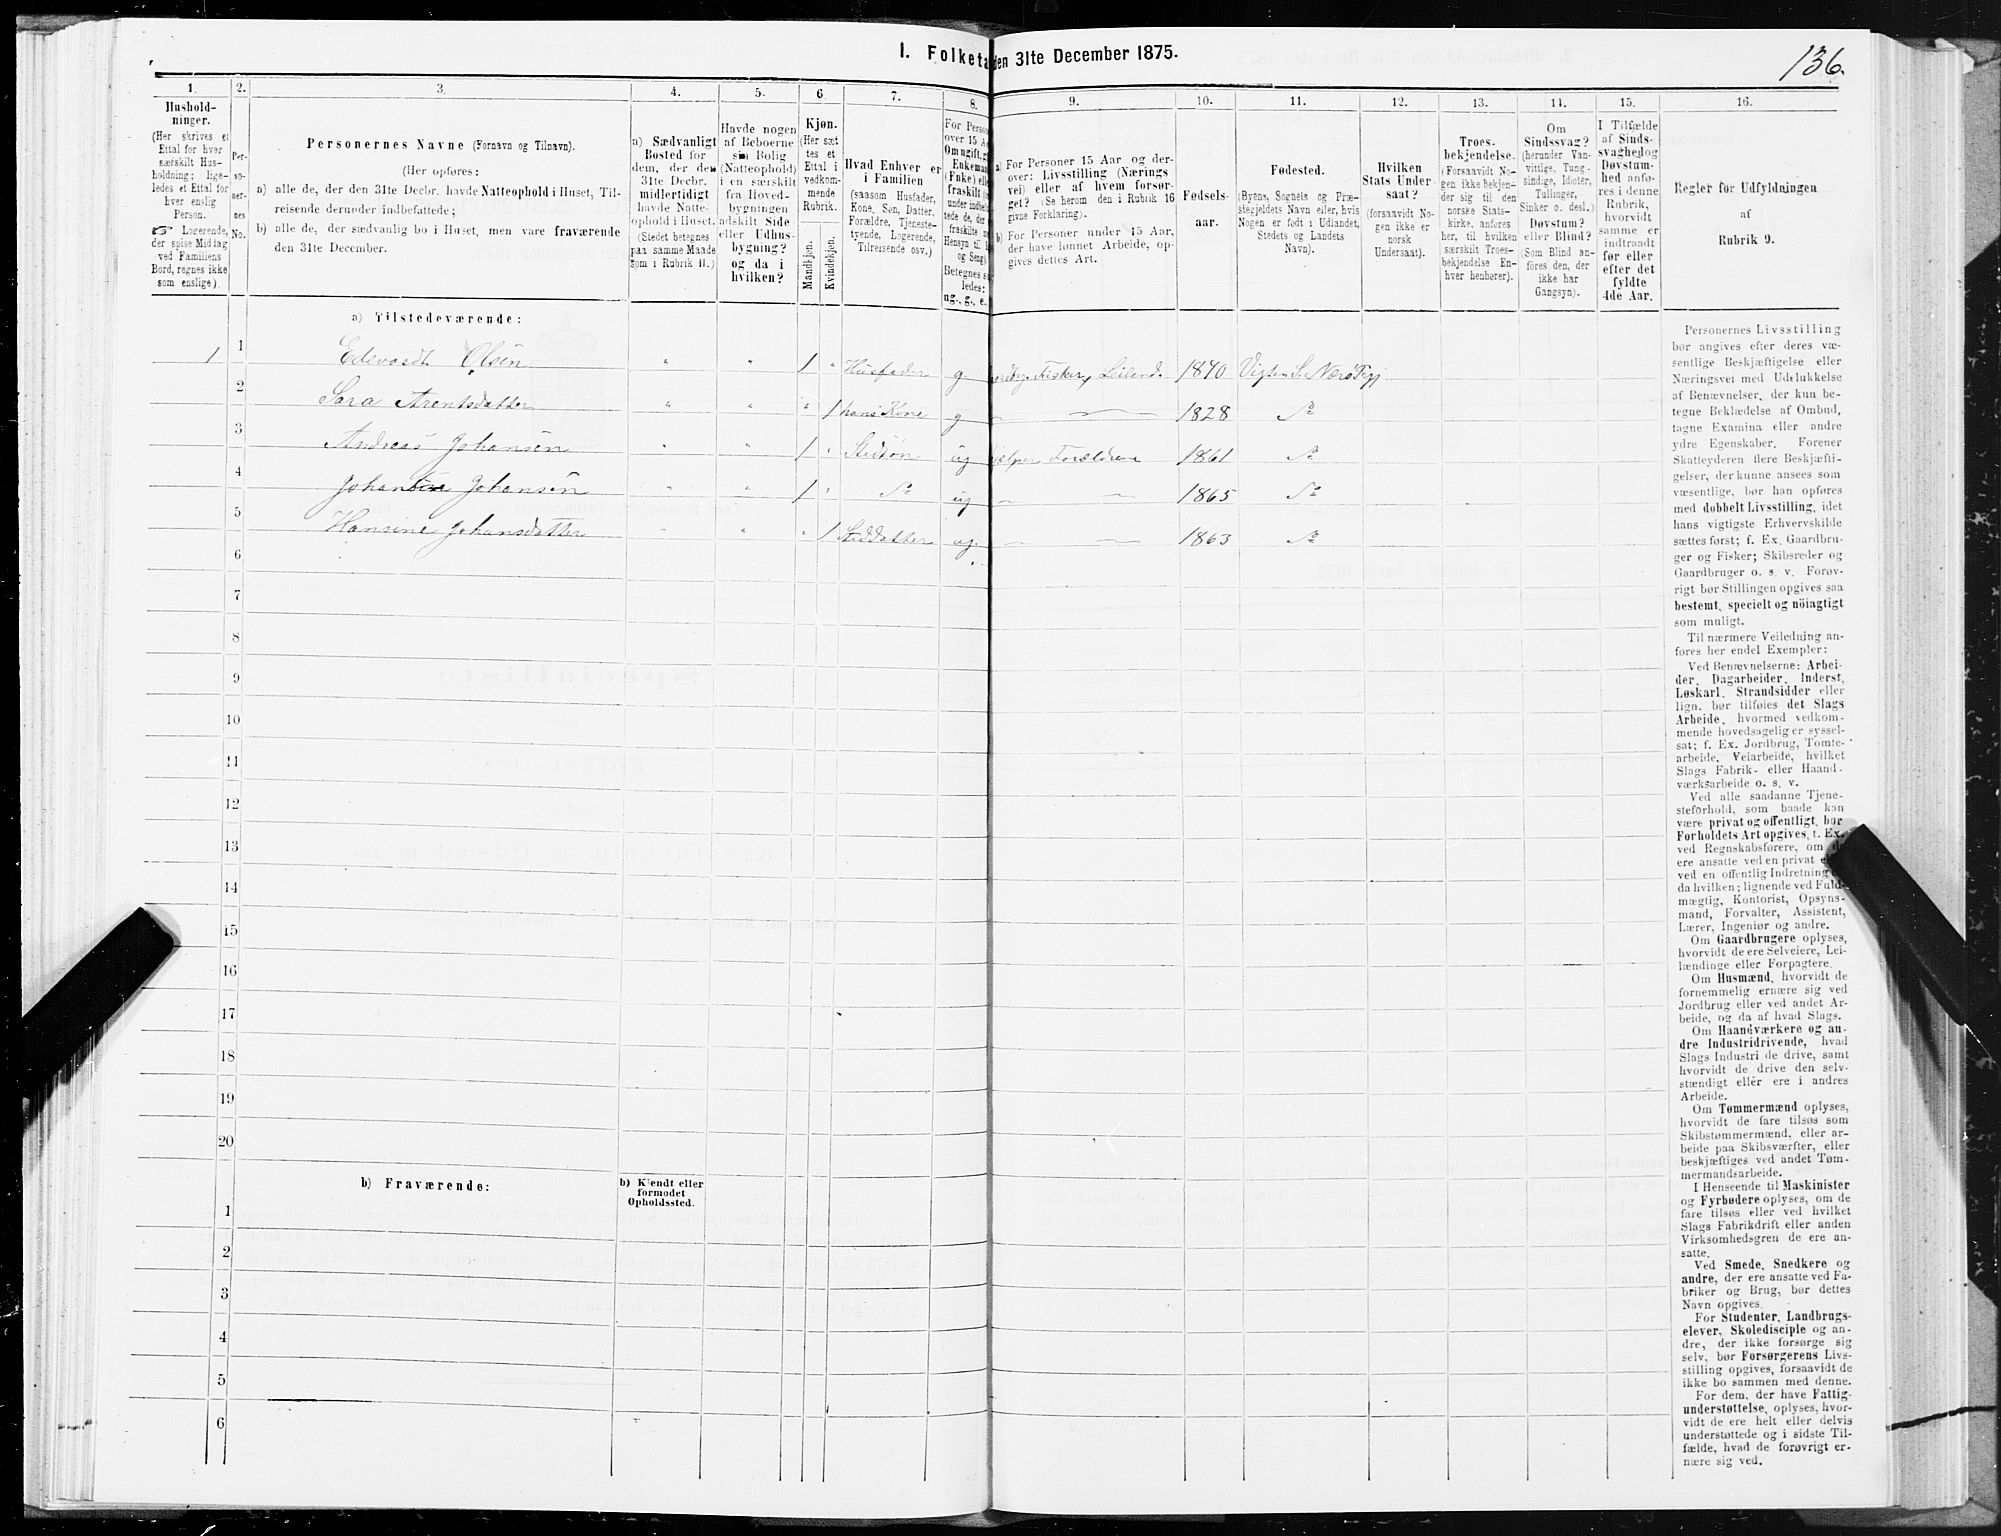 I. Folketa den 31te December 1875.
136.
1.
2.
3.
4.
5.
6.
7.
8.
9.
10.
11.
12.
13.
14.
15.
16.
Hushold-
ninger.
(Her skrives et
Ettal for hver
særskilt Hus-
holdning; lige-
ledes et Ettal for
hver enslig
Person.
☞ Logerende,
der spise Middag
ved Familiens
Bord, regnes ikke
som enslige).
Per-
so-
ner-
nes
No.
Personernes Navne (Fornavn og Tilnavn).
(Her opføres:
a) alle de, der den 31te Decbr. havde Natteophold i Huset, Til-
reisende derunder indbefattede;
b) alle de, der sædvanlig bo i Huset, men vare fraværende
den 31te December.
a) Sædvanligt
Bosted for
dem, der den
31te Decbr.
midlertidigt
havde Natte-
ophold i Huset.
(Stedet betegnes
paa samme Maade
som i Rubrik 11.)
Havde nogen
af Beboerne
sin Bolig
(Natteophold)
i en særskilt
fra Hoved-
bygningen
adskilt Side
eller Udhus-
bygning?
og da i
hvilken?
Kjøn.
(Her sæt
tes et
Ettal i
vedkom-
mende
Rubrik.
Mandkjøn.
Kvindekjøn.
Hvad Enhver er
i Familien
(saasom Husfader,
Kone, Søn, Datter,
Forældre, Tjeneste-
tyende, Logerende,
Tilreisende osv.)
For Person
over 15 Aar
Om ugift, g
Enkeman
(Fnke) elle
fraskilt
under indbef
tede de, der
fraskilte
Hensyn til
og Seng).
Betegnes s
ledes:
ug., g., e.
a) For Personer 15 Aar og der-
over: Livsstilling (Nærings
vei) eller af hvem forsør-
get? (Se herom den i Rubrik 16
givne Forklaring).
b) For Personer under 15 Aar,
der have lønnet Arbeide, op-
gives dettes Art.
Fødsels-
aar.
Fødested.
(Byens, Sognets og Præ-
stegjeldets Navn eller, hvis
Nogen er født i Udlandet,
Stedets og Landets
Navn).
Hvilken
Stats Under-
saat?
(forsaavidt No-
gen ikke er
norsk
Undersaat).
Troes-
bekjendelse.
(Forsaavidt No-
gen ikke bekjen-
der sig til den
norske Stats-
kirke, anføres
her, til hvilken
særskilt Troes-
bekjendelse En-
hver henhører).
Om
Sindssvag?
(herunder Van-
vittige, Tung-
sindige, Idioter,
Tullinger,
Sinker o. desl.)
Døvstum?
eller Blind?
(Som Blind an-
føres den, der
ikke har
Gangsyn).
I Tilfælde
af Sinds-
svaghed og
Døvstum-
hed anfø-
res i denne
Rubrik,
hvorvidt
samme er
indtraadt
før eller
efter det
fyldte
4de Aar.
Regler for Udfyldningen
af
Rubrik 9.
a) Tilstedeværende:
1 1 Edevardt Olsen " " 1 " Husfader g Fisker, Leilend. 1840 Vigten S. Nærø Pgj
2 Sara Arentsdatter " " " 1 hans Kone g — — 1828 Do
3 Andreas Johansen " " 1 " Stedsøn ug Forældrene 1861 Do
4 Johan Johansen " " 1 " Do ug — — 1865 Do
5 Hansine Johansdatter " " " 1 Steddatter ug. — — 1863 Do
6
7
8
9
10
11
12
13
14
15
16
17
18
19
20
b) Fraværende:
b) Kjendt eller
formodet
Opholdssted.
1
2
3
4
5
6
Personernes Livsstilling
bør angives efter deres væ-
sentlige Beskjæftigelse eller
Næringsvei med Udelukkelse
af Benævnelser, der kun be-
tegne Beklædelse af Ombud,
tagne Examina eller andre
ydre Egenskaber. Forener
Skatteyderen flere Beskjæfti-
gelser, der kunne ansees som
væsentlige, bør han opføres
med dobbelt Livsstilling, idet
hans vigtigste Erhvervskilde
sættes først; f. Ex. Gaardbru-
ger og Fisker; Skibsreder og
Gaardbruger o. s. v. Forøv-
rigt bør Stillingen opgives saa
bestemt, specielt og nöiagtigt
som muligt.
Til nærmere Veiledning an-
føres her endel Exempler:
Ved Benævnelserne: Arbei-
der, Dagarbeider, Inderst,
Løskarl, Strandsidder eller
lign. bør tilføies det Slags
Arbeide, hvormed vedkom-
mende hovedsagelig er syssel-
sat; f. Ex. Jordbrug, Tomte-
arbeide, Veiarbeide, hvilket
Slags Fabrik- eller Haand-
værksarbeide o. s. v.
Ved alle saadanne Tjene-
steforhold, som baade kan
være privat og offentligt, bør
Forholdets Art opgives, t. Ex.
ved Regnskabsførere, om de
ere ansatte ved en privat e
ved en offentlig Indretning
da hvilken; lignende ved Fuld-
mægtig, Kontorist, Opsyns-
mand, Forvalter, Assistent,
Lærer, Ingeniør og andre.
Om Gaardbrugere oplyses,
hvorvidt de ere Selveiere, Lei-
lændinge eller Forpagtere.
Om Husmænd, hvorvidt de
fornemmelig ernære sig ved
Jordbrug eller ved andet Ar-
beide, og da af hvad Slags.
Om Haandværkere og an-
dre Industridrivende, hvad
Slags Industri de drive, samt
hvorvidt de drive den selv-
stændigt eller ere i andres
Arbeide.
Om Tømmermænd oplyses,
hvorvidt de fare tilsøs som
Skibstømmermænd, eller ar-
beide paa Skibsværfter, eller
beskjæftiges ved andet Tøm-
mermandsarbeide.
I Henseende til Maskinister
og Fyrbødere oplyses, om de
fare tilsøs eller ved hvilket
Slags Fabrikdrift eller anden
Virksomhedsgren de ere an-
satte.
Ved Smede, Snedkere og
andre, der ere ansatte ved Fa-
briker og Brug, bør dettes
Navn opgives.
For Studenter, Landbrugs-
elever, Skoledisciple og an-
dre, der ikke forsørge sig
selv, bør Forsørgerens Livs-
stilling opgives, forsaavidt de
ikke bo sammen med denne.
For dem, der have Fattig-
understøttelse, oplyses, hvor-
vidt de ere helt eller delvis
understøttede og i sidste Til-
fælde, hvad de forøvrigt er-
nære sig ved.